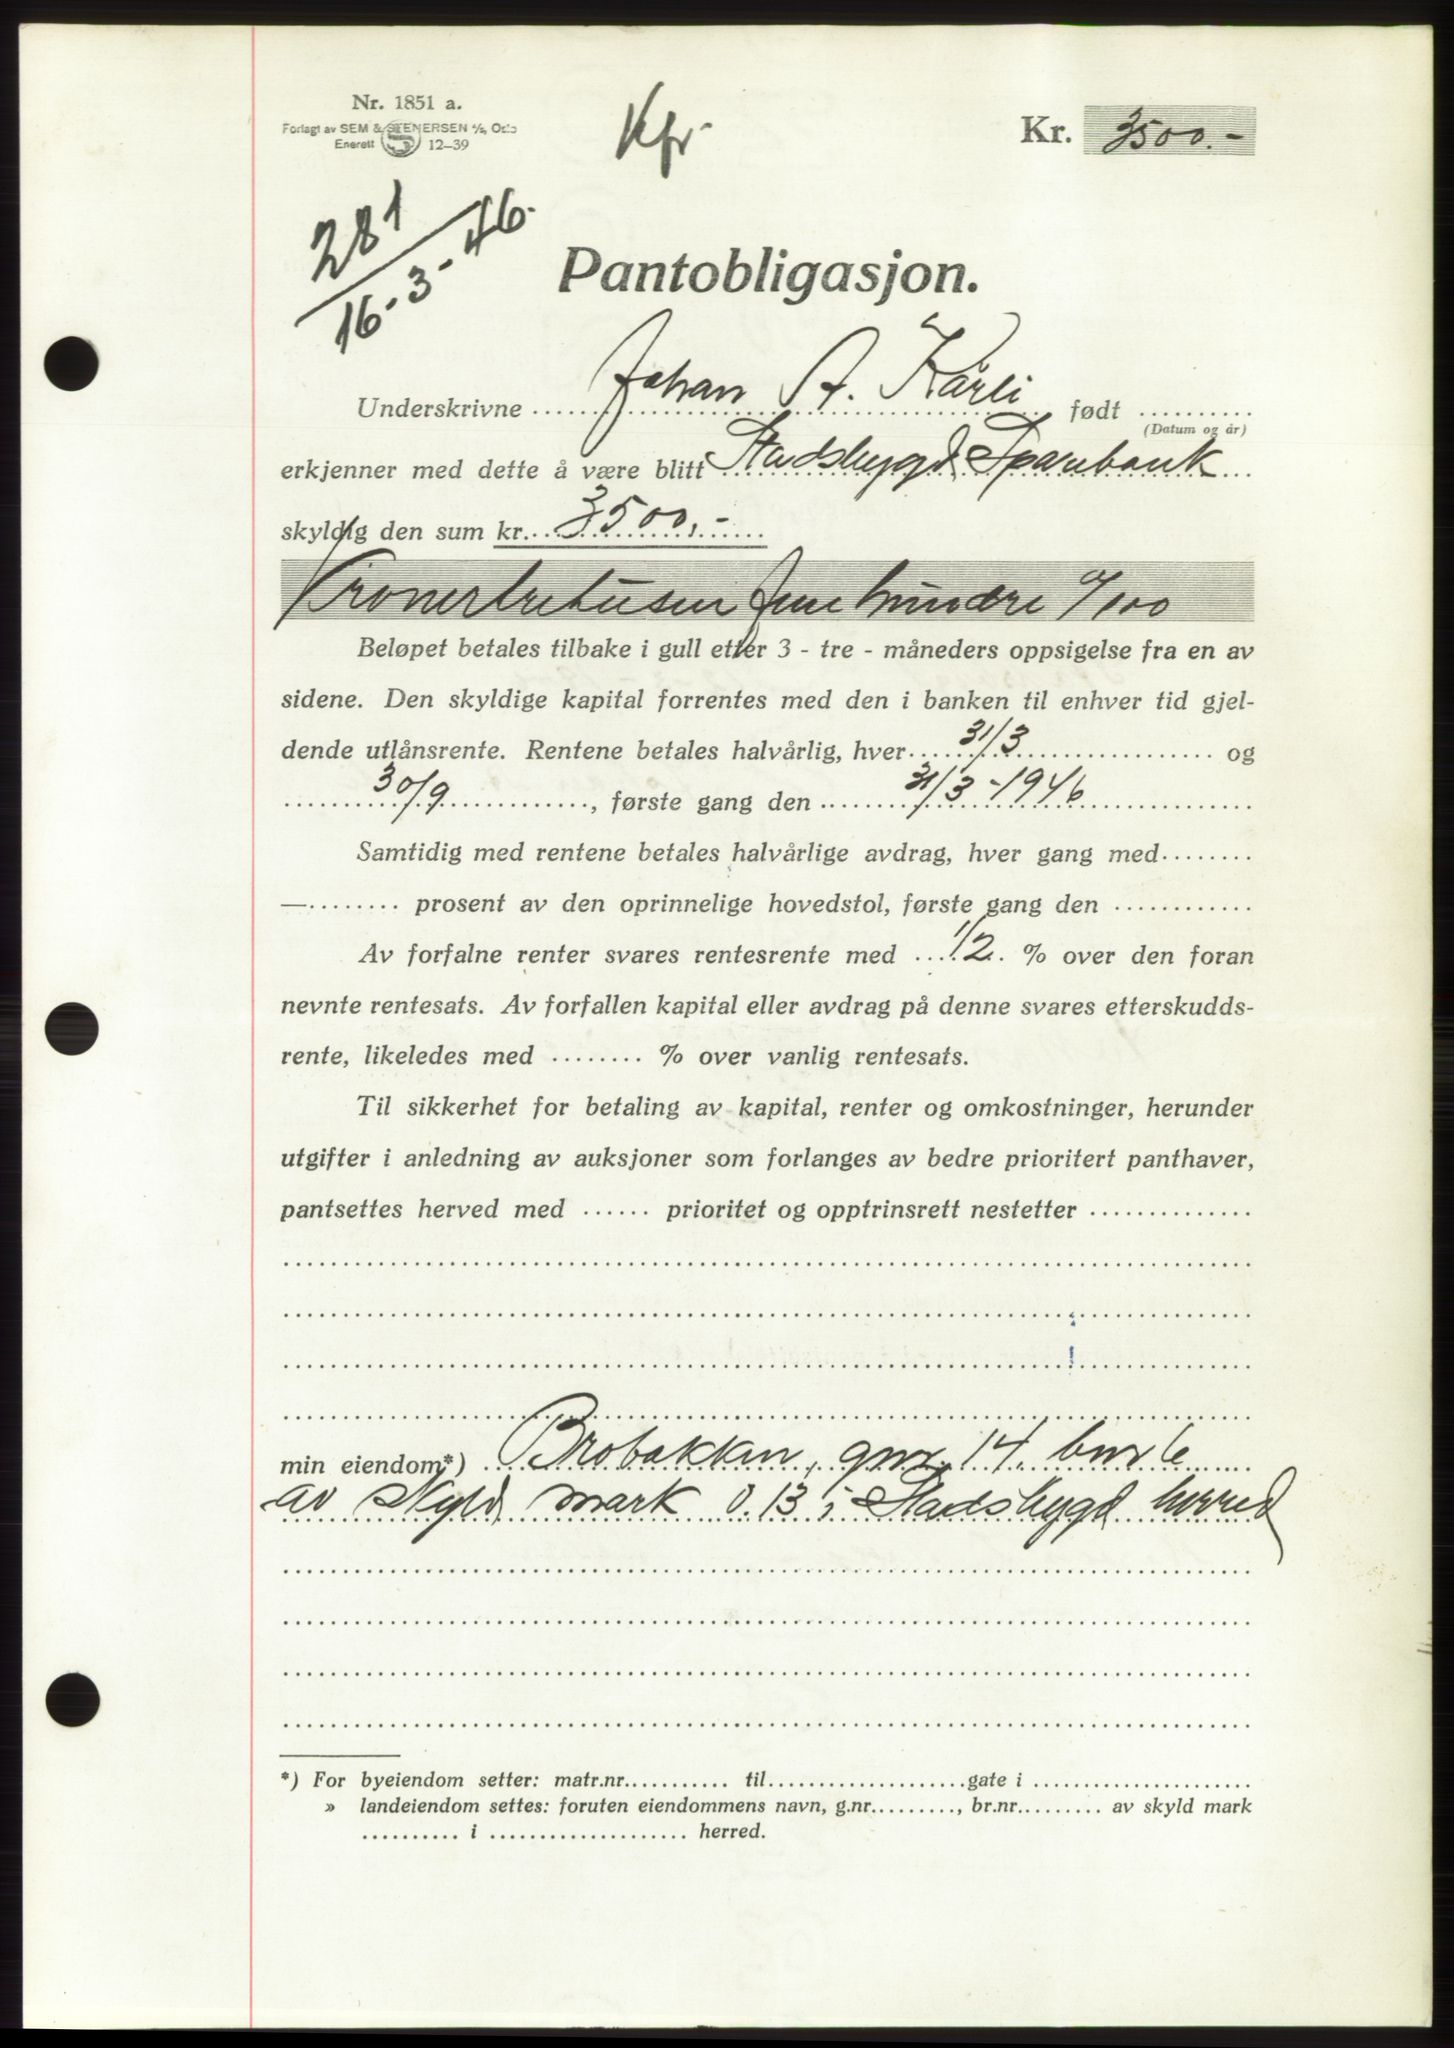 Nr. 1851 a.
Forlagt av SEM & STENERSEN A/S, Oslo
Enerett 12–39
Kfr.
Kr. 3500.-
281
16-3-46.
Pantobligasjon.
Underskrivne Johan A. Kårli født
(Datum og år)
erkjenner med dette å være blitt Stadsbygd Sparebank
skyldig den sum kr. 3500,-
Kronertretusen fem hundre 0/100
Beløpet betales tilbake i gull etter 3 - tre - måneders oppsigelse fra en av
sidene. Den skyldige kapital forrentes med den i banken til enhver tid gjel-
dende utlånsrente. Rentene betales halvårlig, hver 31/3 og
30/9, første gang den 31/3-1946
Samtidig med rentene betales halvårlige avdrag, hver gang med
— prosent av den oprinnelige hovedstol, første gang den
Av forfalne renter svares rentesrente med 1/2 % over den foran
nevnte rentesats. Av forfallen kapital eller avdrag på denne svares etterskudds-
rente, likeledes med % over vanlig rentesats.
Til sikkerhet for betaling av kapital, renter og omkostninger, herunder
utgifter i anledning av auksjoner som forlanges av bedre prioritert panthaver,
pantsettes herved med prioritet og opptrinsrett nestetter
min eiendom*) Brobakken, gnr. 14, bnr 6
av skyld mark 0.13 i Stadsbygd herred
*) For byeiendom setter: matr.nr. til gate i
» landeiendom settes: foruten eiendommens navn, g.nr., br.nr. av skyld mark
i herred.